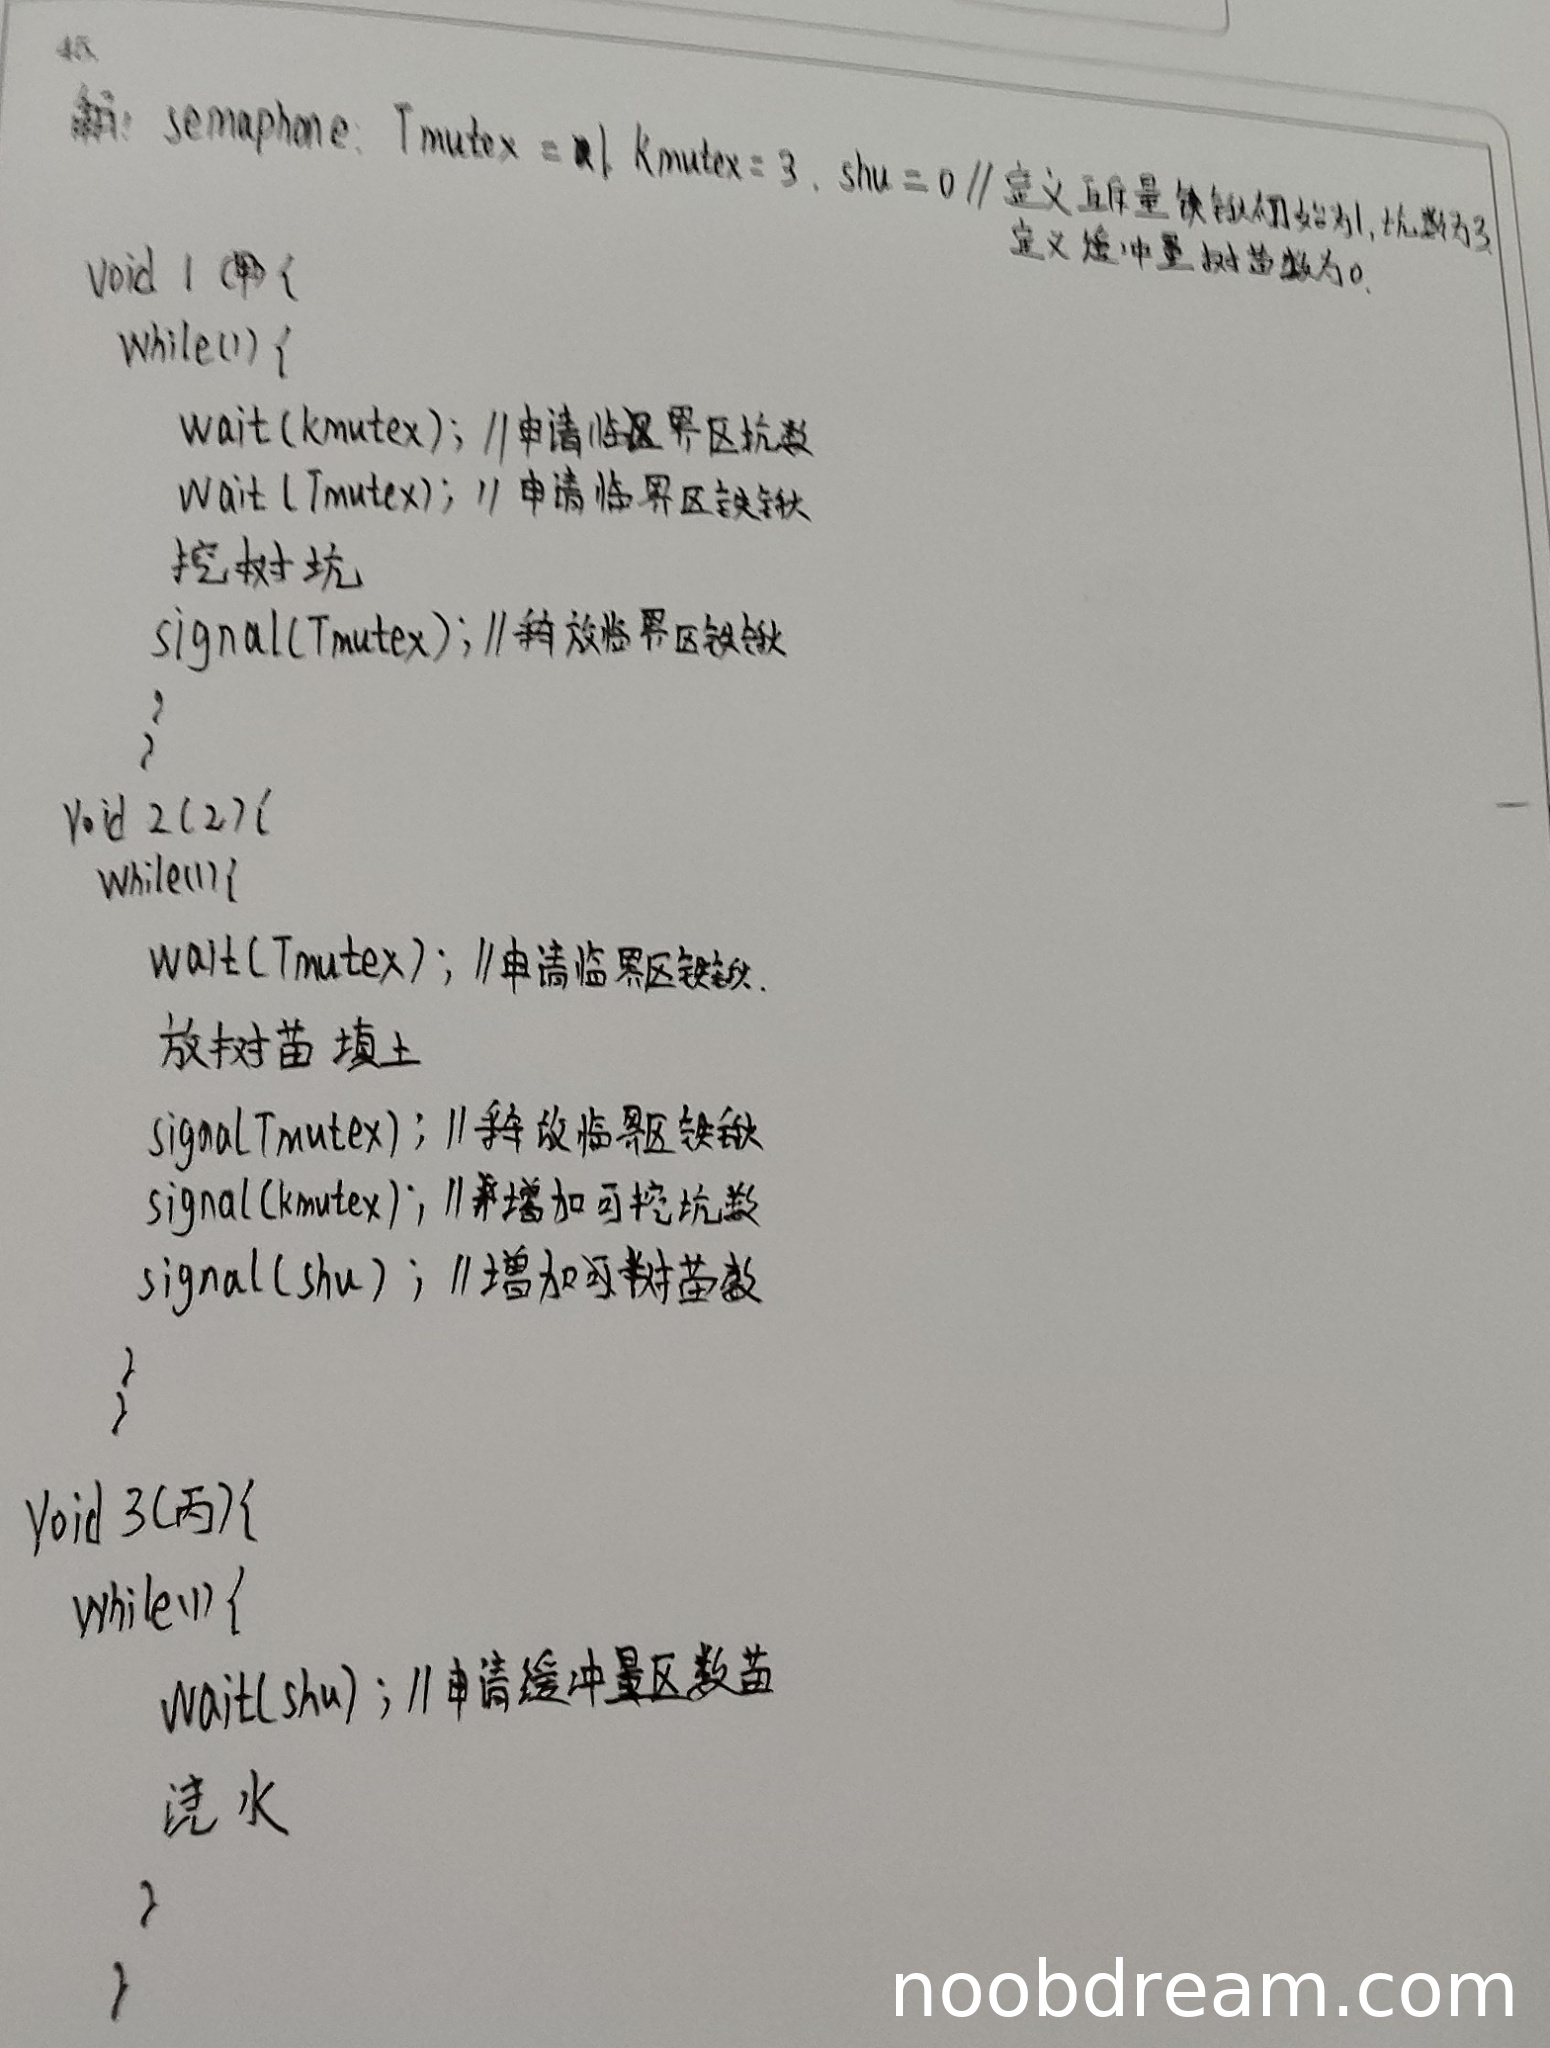 45
解: semaphone: Tmutex = 1. kmutex = 3. shu = 0 // 定义互斥量铁锹初始为1,坑数为3
定义缓冲量树苗数为0.
void 1 (甲) {
while(1) {
wait(kmutex); //申请临界区坑数
wait(Tmutex); // 申请临界区铁锹
挖树坑
signal(Tmutex); //释放临界区铁锹
}
}
void 2(乙){
while(1){
wait(Tmutex); //申请临界区铁锹.
放树苗 填土
signalTmutex); //释放临界区铁锹
signal(kmutex); //增加可挖坑数
signal(shu); //增加可树苗数
}
}
void 3(丙){
while(1){
wait(shu); //申请缓冲量区数苗
浇水
}
}
noobdream.com